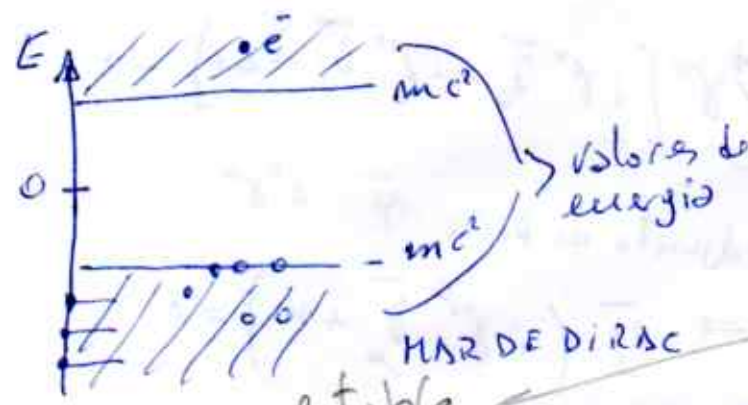 E
e⁻
mc²
0
valores de
energia
- mc²
MAR DE DIRAC